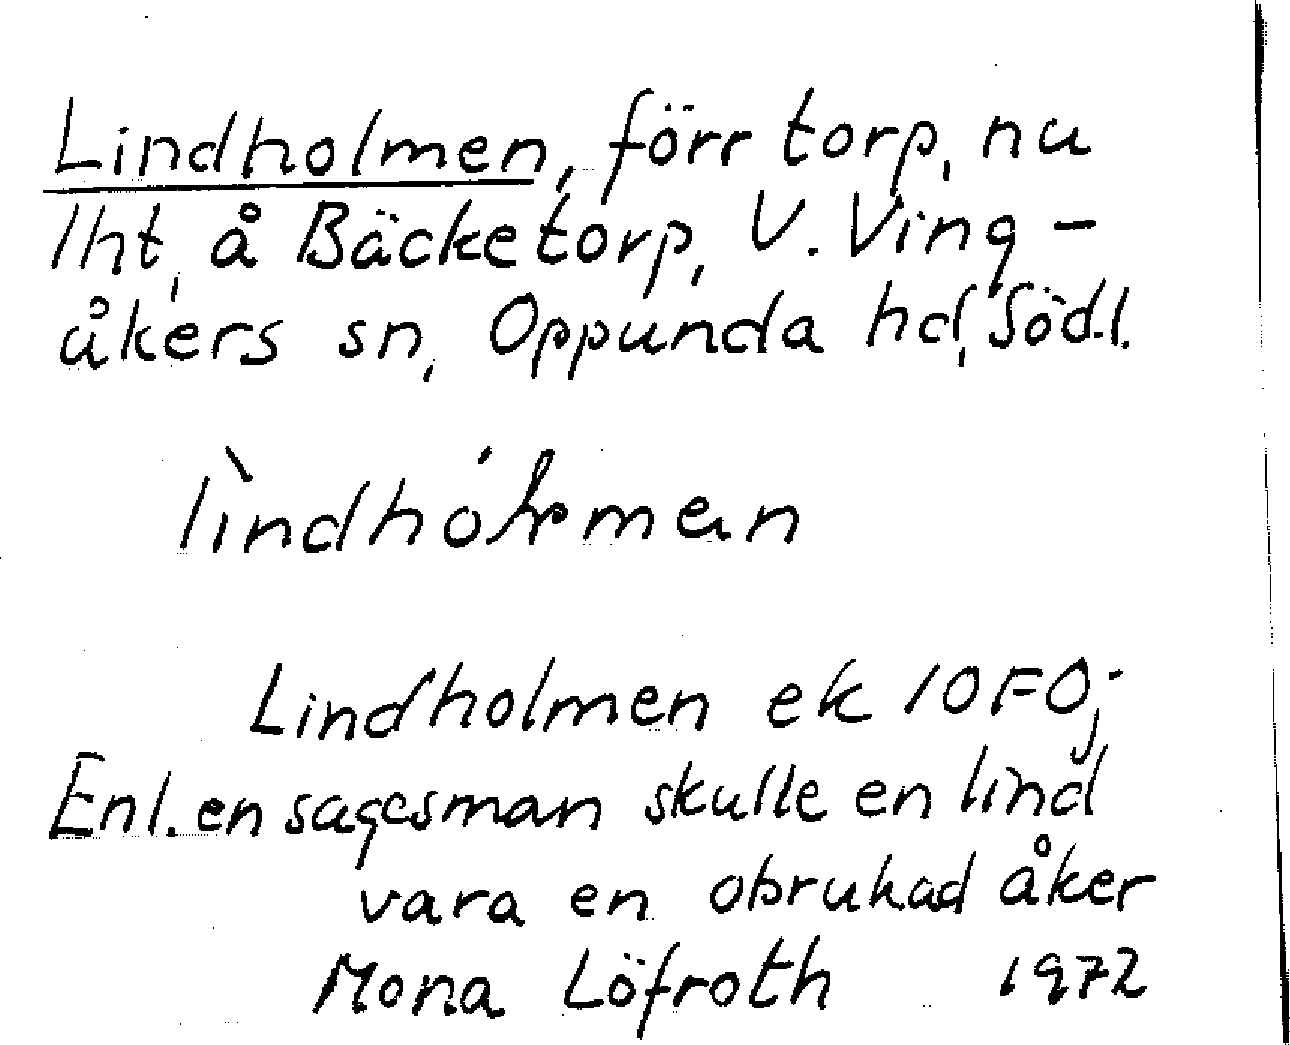 Lindholmen, förr torp, nu
lht, å Bäcketorp, V. Ving-
åkers sn, Oppunda hd, Södl.
Lindholmen ek 10F0j
Enl. en sagesman skulle en lind
vara en obrukad åker
Mona Löfroth 1972